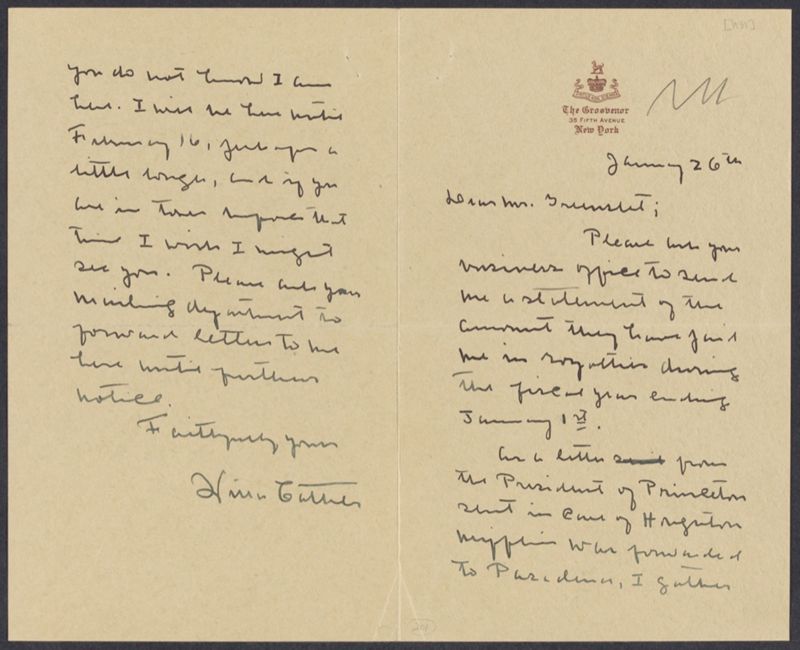 The Grosvenor
35 Fifth Avenue
New York
January 26th
Dear Mr. Greenslet;
Please ask your
business office to send
me a statement of the
amount they have paid
me in royalties during
the fiscal year ending
January 1st.
As a letter sent from
the President of Princeton
sent in care of Houghton
Mifflin was forwarded
to Pasadena, I gather
you do not know I am
here. I will be here until
February 16, perhaps a
little longer, and if you
are in town before that
time I wish I might
see you. Please ask your
mailing department to
forward letters to me
here until further
notice.
Faithfully yours
Willa Cather